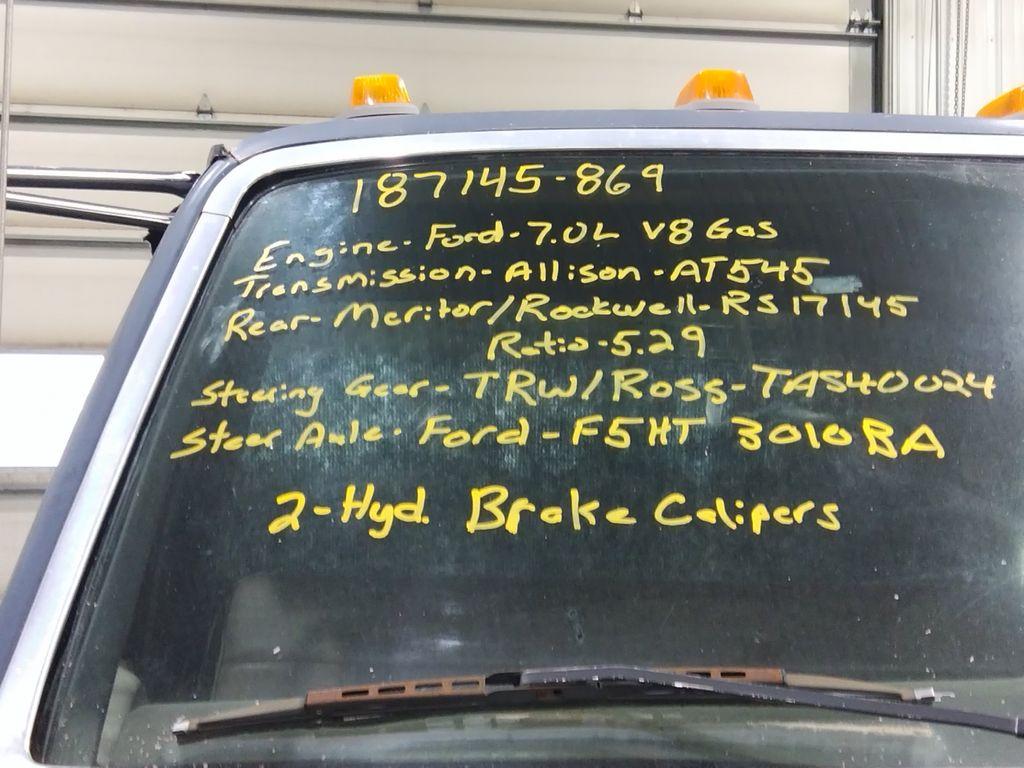 187145-869
Engine- Ford-7.0L V8 Gas
Transmission- Allison -AT545
Rear- Meritor/Rockwell-RS17145
Ratio-5.29
Steering Gear- TRW/Ross-TAS40024
Steer Axle- Ford-F5HT 3010BA
2-Hyd. Brake Calipers